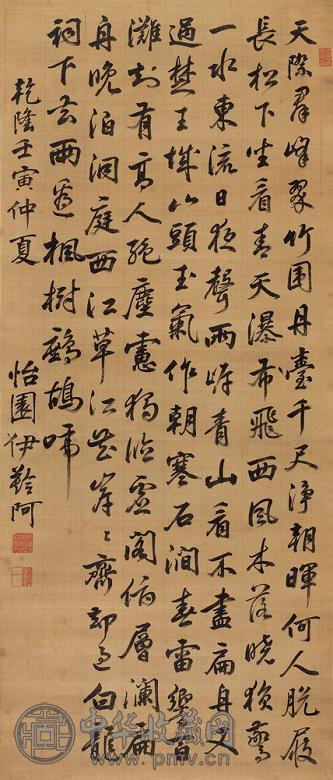 天際群峰翠竹围丹臺千尺浄朝暉何人脱屐
長松下坐看青天瀑布飛西風木落曉猿驚
一水東流日夜聲兩岸青山看不盡扁舟又
過楚王城山頭玉氣作朝寒石澗春雷響昏
灘刻有高人絶塵慮獨臨虚閣俯層瀾扁
舟晚泊洞庭西江草江花岸〻齊却過白龍
祠下去兩邊楓樹鷓鴣啼
乾隆壬寅仲夏
怡園伊齡阿
中华收藏网
www.pmtv.cn